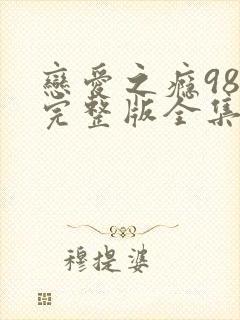 戀愛之癮98
完整版全集
穆提婆